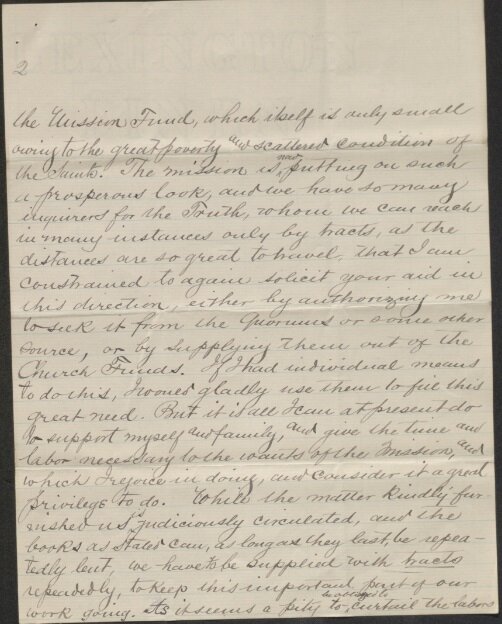 2
the Mission Fund, which itself is only small
owing to the great poverty and scattered condition of
the Saints. The mission is now putting on such
a prosperous look, and we have so many
inquirers for the Truth, whom we can reach
in many instances only by tracts, as the
distances are so great to travel, that I am
constrained to again solicit your aid in
this direction, either by authorizing me
to seek it from the Quorums or some other
source, or by supplying them out of the
Church Funds. If I had individual means
to do this, I would gladly use them to fill this
great need. But it is all I can at present do
to support myself and family, and give the time and
labor necessary to the wants of the Mission, and
which I rejoice in doing, and consider it a great
privilege to do. While the matter kindly fur-
nished us, judiciously circulated, and the
books as stated can, as long as they last, be repea-
tedly lent, we have to be supplied with tracts
repeatedly, to keep this important part of our
work going. As it seems a pity to be obliged to curtail the labors